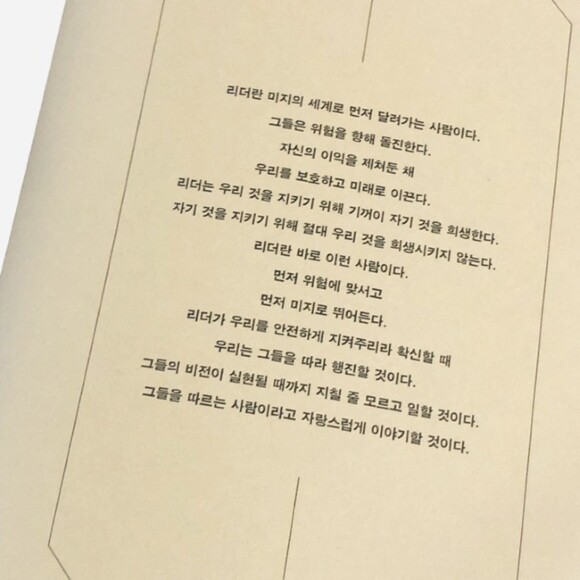 리더란 미지의 세계로 먼저 달려가는 사람이다.
그들은 위험을 향해 돌진한다.
자신의 이익을 제쳐둔 채
우리를 보호하고 미래로 이끈다.
리더는 우리 것을 지키기 위해 기꺼이 자기 것을 희생한다.
자기 것을 지키기 위해 절대 우리 것을 희생시키지 않는다.
리더란 바로 이런 사람이다.
먼저 위험에 맞서고
먼저 미지로 뛰어든다.
리더가 우리를 안전하게 지켜주리라 확신할 때
우리는 그들을 따라 행진할 것이다.
그들의 비전이 실현될 때까지 지칠 줄 모르고 일할 것이다.
그들을 따르는 사람이라고 자랑스럽게 이야기할 것이다.